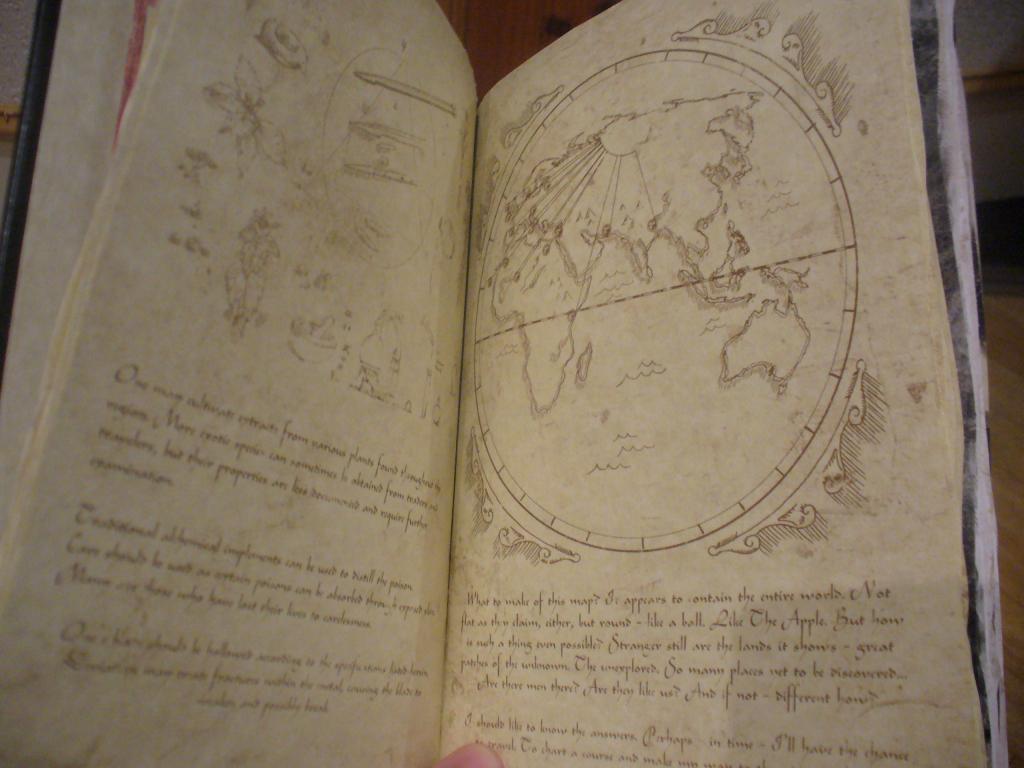 One may cultivate extracts from various plants found throughout the
regions. More exotic species can sometimes be obtained from traders and
travelers, but their properties are less documented and require further
examination.
Traditional alchemical implements can be used to distill the poison.
Care should be used as certain poisons can be absorbed through exposed skin.
Many are those who have lost their lives to carelessness.
One's blade should be hallowed according to the specifications listed herein.
in many minute fractures within the metal, causing the blade to
weaken and possibly break.
What to make of this map? It appears to contain the entire world. Not
flat as they claim, either, but round - like a ball. Like The Apple. But how
is such a thing even possible? Stranger still are the lands it shows - great
patches of the unknown. The unexplored. So many places yet to be discovered...
Are there men there? Are they like us? And if not - different how?
I should like to know the answers. Perhaps - in time - I'll have the chance
to travel. To chart a course and make my way to